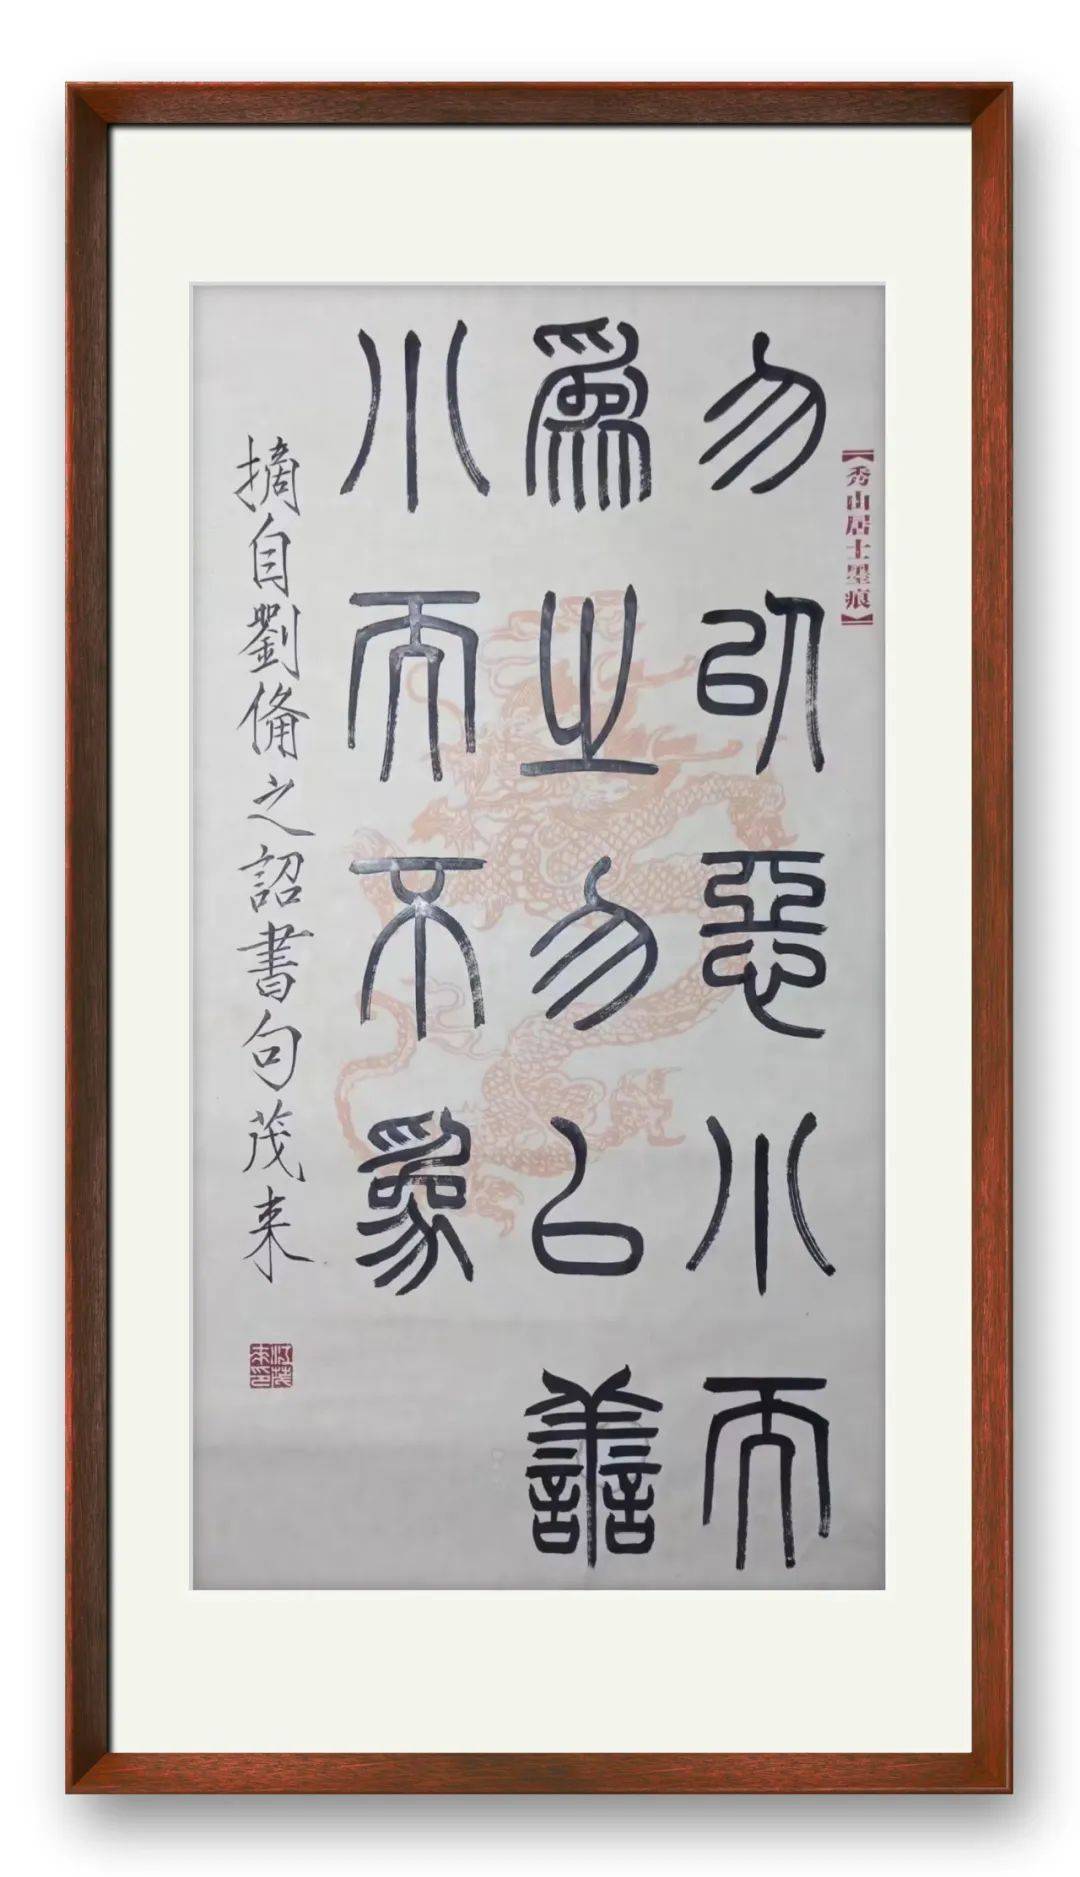 【秀山居士墨痕】
勿以惡小而
爲之勿以善
小而不爲
摘自劉備之詔書句茂来
江茂来印